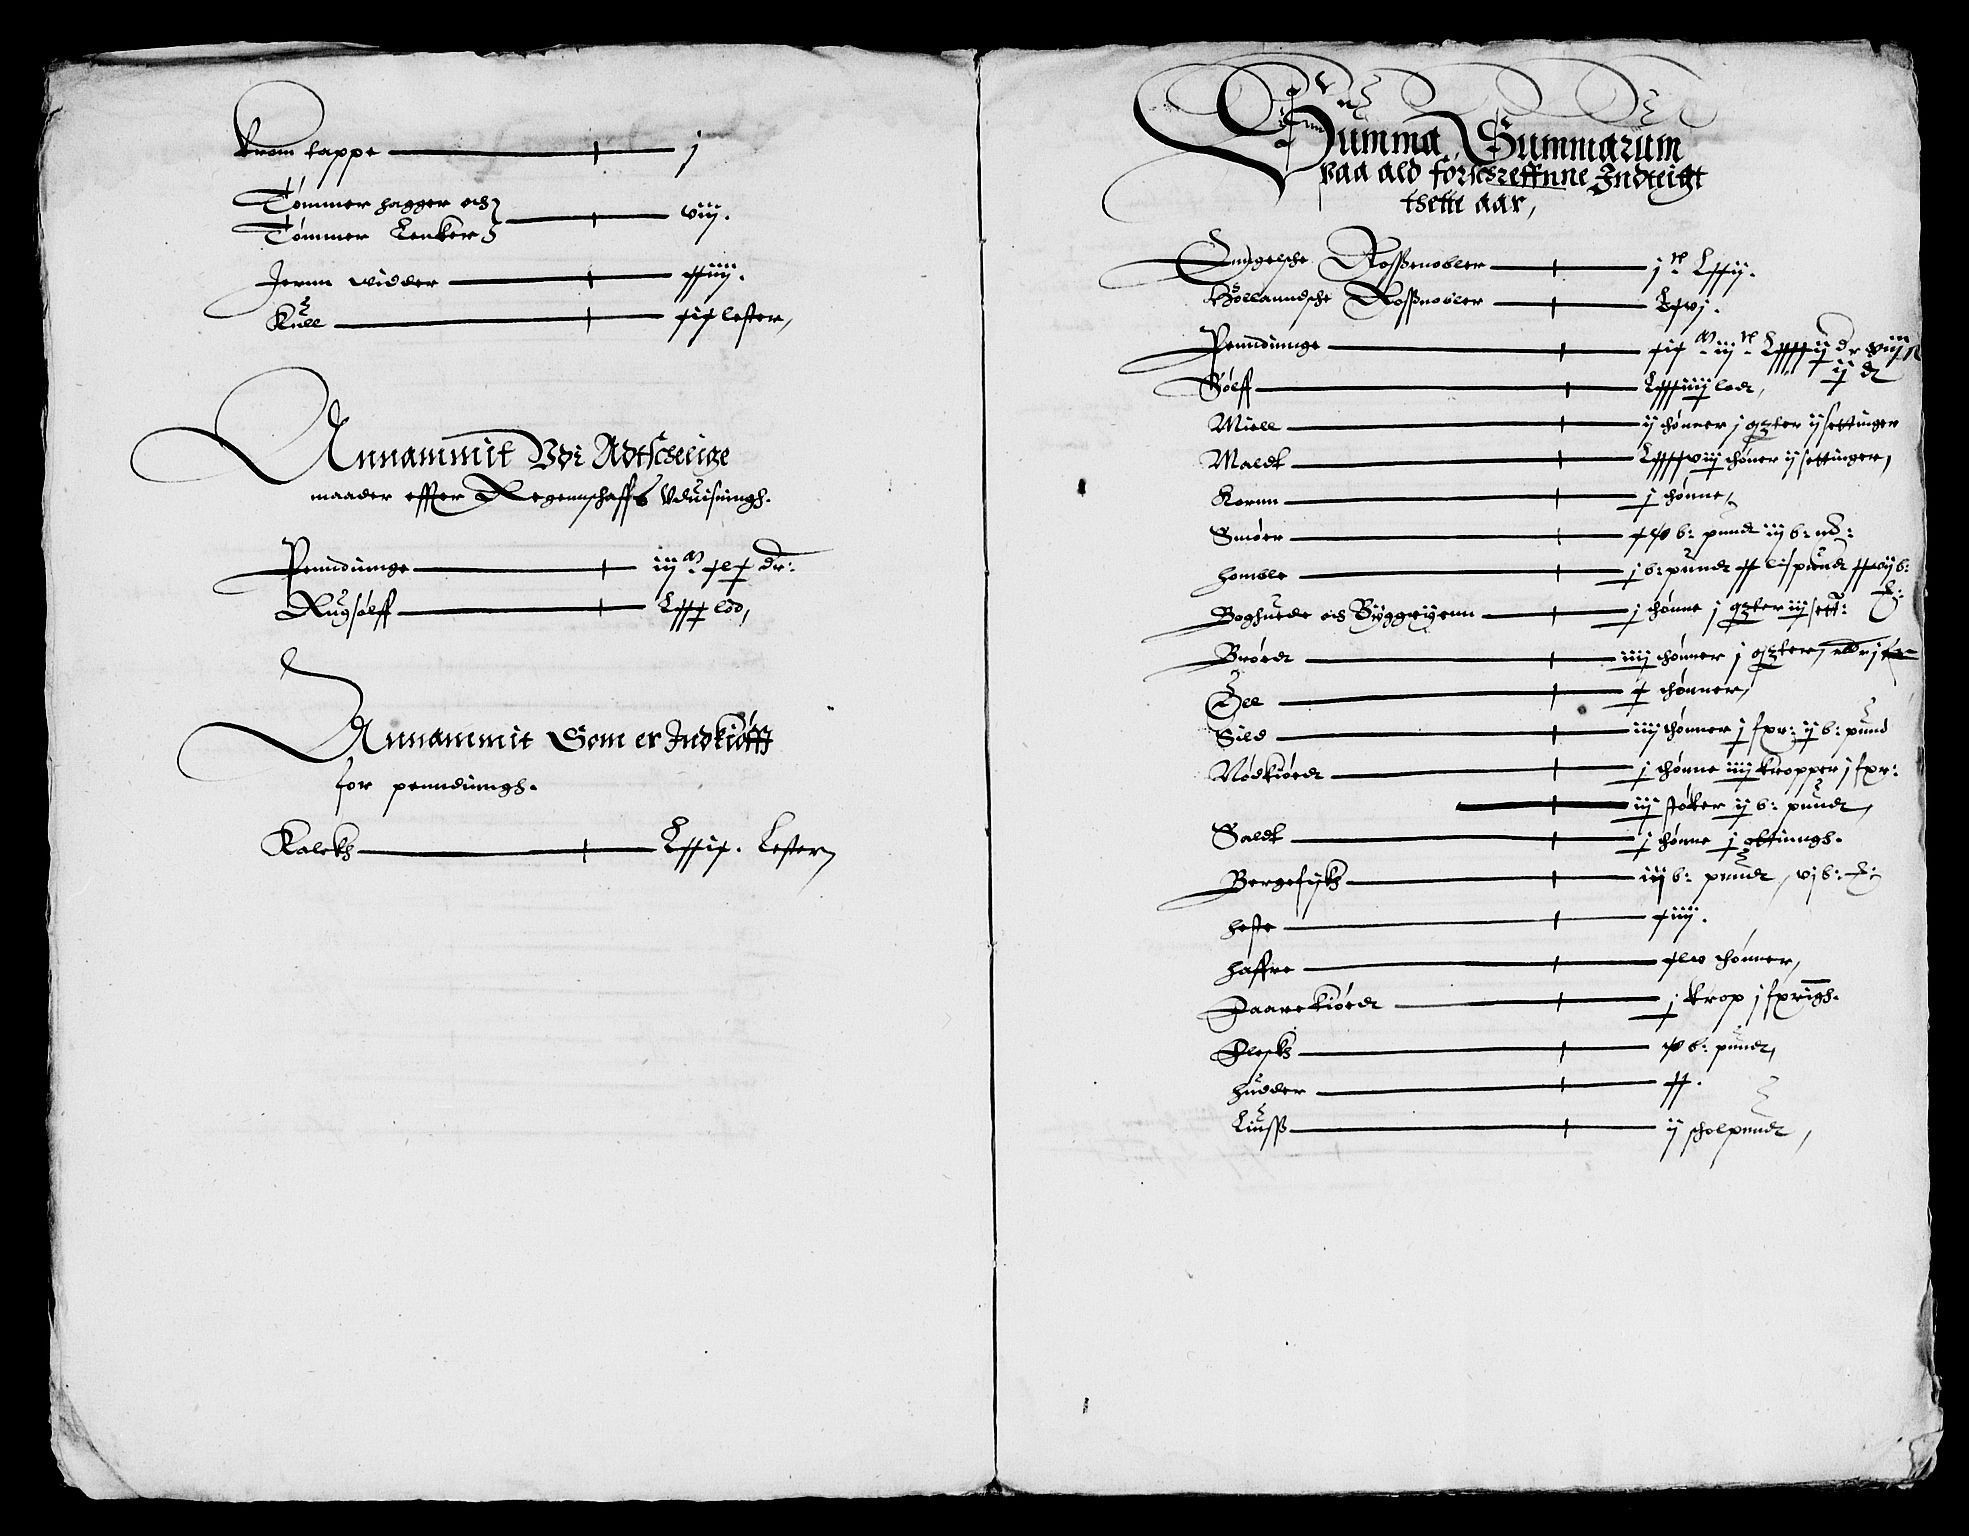 Krom tappe — j
Tømmer hagger och
Tømmer Lencker — viij.
Jernn Ridder — xxiiij.
Kull — xix lester,
Annammit Vdi Adtschelige
maader effter Regennschaffs Vduisningh.
Penndinnge — iij m xlx dr:
Rugsølff — Lxxx lod,
Annammit Som er Indkiøfft
for penndinngh.
Kalckh — Lxxix. Lester
Summa Summarum
paa ald forschreffnne Indteigt
thette aar,
Enngelsche Rossenobler — j c Lxxij.
Hollanndsche Rossnobler — Lxvj.
Penndinnge — xix m iij c Lxxxxij dr viij s
ij d
Sølff — Lxxxiiij lodt,
Miell — ij thønner j qrter ij settinger
Maldt — Lxxxxviij thøner ij settinger,
Kornn — j thønne,
Smøer — b: pundt iij b: md:
Homble — j b: pundt xx lispundt xxvij b:
Boghuede och Byggrynn — j thønne j qrter iij sett:
Brødt — iiij thønner j qrter,
Øll — x thønner,
Sild — iiij thønner j fpr: ij b: pund
Nødkiødt — j thønne iiij kropper j fpr:
iij støker ij b: pundt,
Saldt — j thønne j ottinngh.
Bergefisk — iij b: pundt, vj b:
Heste — xiiij.
Haffre — xlv thønner,
Faarekiødt — j krop j fpringh.
Flesk — xv b: pundt,
Huder — xx.
Liuss — ij scholpundt,